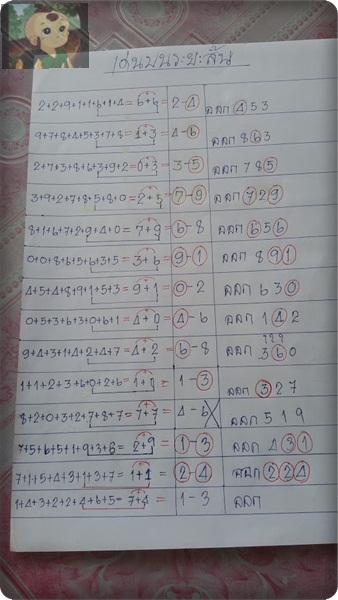 เด่นบนระยะสั้น
2+2+9+1+1+6+1+4= 6+6 = 2-4 ออก 453
9+7+8+4+5+3+7+8= 1+3 = 4-6 ออก 863
2+7+3+8+6+3+9+2= 0+3 = 3-5 ออก 785
3+9+2+7+8+5+8+0= 2+5 = 7-9 ออก 729
8+1+6+7+2+9+4+0= 7+9 = 6-8 ออก 656
0+0+8+6+5+6+3+5= 3+6 = 9-1 ออก 891
4+5+4+8+9+1+5+3= 9+1 = 0-2 ออก 630
0+5+3+6+3+0+6+1= 4+0 = 4-6 ออก 142
9+4+3+1+4+2+4+7= 4+2 = 6-8 ออก 360
1+1+2+3+6+0+2+6= = 1-3 ออก 327
8+2+0+3+2+7+8+7= 7+7 = 4-6 ออก 519
7+5+6+5+1+9+3+6= 2+9 = 1-3 ออก 431
7+1+5+4+3+1+3+7= 1+1 = 2-4 ออก 224
1+4+3+2+2+4+6+5= 7+4 = 1-3 ออก